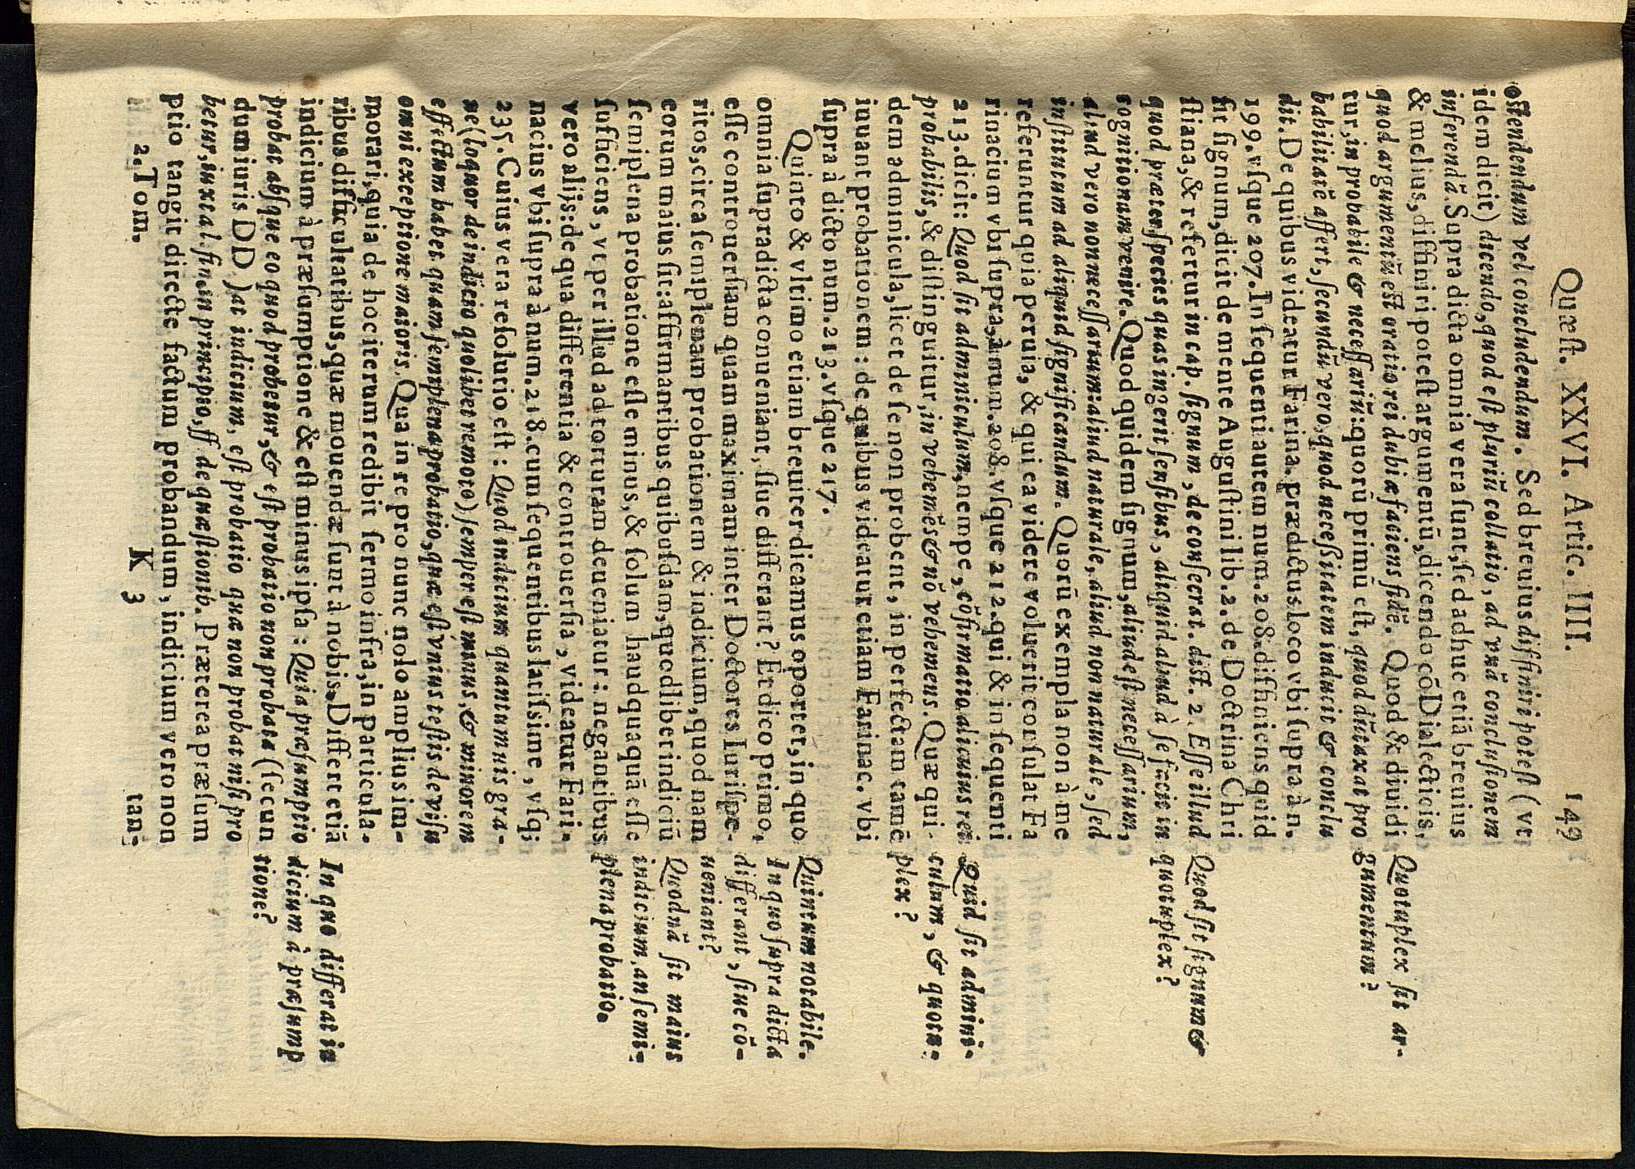 Quæſt. XXVI. Artic. IIII. 149
oſtendendum vel concludendum. Sed breuius diffiniri poteſt (vt
idem dicit) dicendo, quod eſt pluriũ collatio, ad vnã concluſionem
inferendã. Supra dicta omnia vera ſunt, ſed adhuc etiã breuius
& melius, diffiniri poteſt argumentũ, dicendo cõ Dialecticis,
quod argumentũ eſt oratio rei dubiæ faciens fidẽ. Quod & diuidi
tur, in probabile & neceſſariũ: quorũ primũ eſt, quod dũtaxat pro
babilitatẽ affert, ſecundũ vero, quod neceſsitatem induit & conclu
dit. De quibus videatur Farina. prædictus loco vbi ſupra à n.
199. vſque 207. In ſequenti autem num. 208. diffiniens quid
ſit ſignum, dicit de mente Auguſtini lib. 2. de Doctrina Chri
ſtiana, & refertur in cap. ſignum, de conſecrat. diſt. 2. Eſſe illud
quod præter ſpecies quas ingerit ſenſibus, aliquid aliud à ſe facit in
cognitionam venire. Quod quidem ſignum, aliud eſt neceſſarium,
aliud vero non neceſſarium: aliud naturale, aliud non naturale, ſed
inſtitutum ad aliquid ſignificandum. Quorũ exempla non à me
referuntur quia peruia, & qui ea videre voluerit conſulat Fa
rinacium vbi ſupra, à num. 208. vſque 212. qui & in ſequenti
213. dicit: Quod ſit adminiculum, nempe, cõfirmatio alicuius rei
probabilis, & diſtinguitur, in vehemẽs & nõ vehemens. Quæ qui
dem adminicula, licet de ſe non probent, in perfectam tamẽ
iuuant probationem: de quibus videatur etiam Farinac. vbi
ſupra à dicto num. 213. vſque 217.
Quinto & vltimo etiam breuiter dicamus oportet, in quo
omnia ſupradicta conueniant, ſiue differant? Et dico primo,
eſſe controuerſiam quam maximam inter Doctores Iuriſpe-
ritos, circa ſemiplenam probationem & indicium, quod nam
eorum maius ſit: affirmantibus quibuſdam, quodlibet indiciũ
ſemiplena probatione eſſe minus, & ſolum haudquaquã eſſe
ſufficiens, vt per illud ad torturam deueniatur: negantibus
vero alijs: de qua differentia & controuerſia, videatur Fari-
nacius vbi ſupra à num. 218. cum ſequentibus latiſsime, vſq;
235. Cuius vera reſolutio eſt: Quod indicium quantumuis gra-
ue (loquor de indicio quolibet remoto) ſemper eſt minus, & minorem
effectum habet quam ſemiplena probatio, quæ eſt vnius teſtis de viſu
omni exceptione maioris. Qua in re pro nunc nolo amplius im-
morari, quia de hoc iterum redibit ſermo infra, in particula-
ribus difficultatibus, quæ mouendæ ſunt à nobis. Differt etiã
indicium à præſumptione & eſt minus ipſa: Quia præſumptio
probat abſque eo quod probetur, & eſt probatio non probata (ſecun
dum iuris DD.) at indicium, eſt probatio quæ non probat niſi pro
betur, iuxta l. fin. in principio, ff de quæſtionib. Præterea præſum
ptio tangit directe factum probandum, indicium vero non
2. Tom. K 3 tan-
Quotuplex ſit ar-
gumentum?
Quod ſit ſignum &
quotuplex?
Quid ſit admini-
culum, & quotu-
plex?
Quintum notabile.
In quo ſupradicta
differant, ſiue cõ-
ueniant?
Quodnã ſit maius
indicium, an ſemi-
plena probatio.
In quo differat in
dicium à præſump
tione?